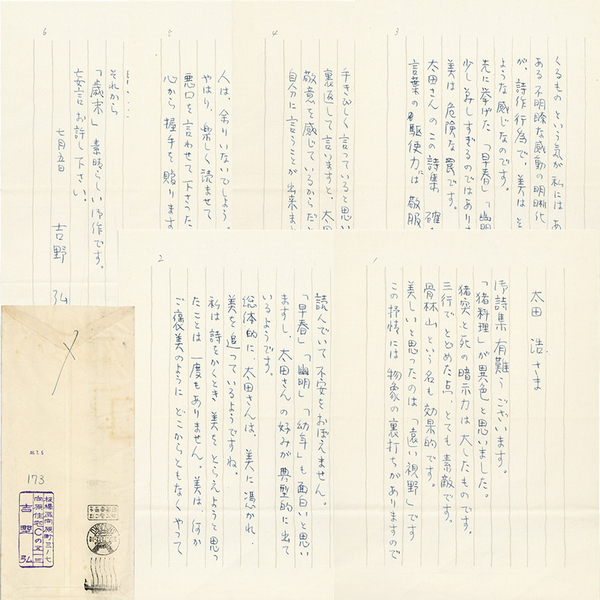 1
太田 浩さま
御詩集 有難うございます。
「猪料理」が異色と思いました。
猪突と死の暗示力は大したものです。
三行でとどめた点、とても素敵です。
骨林山という名も効果的です。
美しいと思ったのは「遠い視野」です
この抒情には物象の裏打ちがありますので
2
読んでいて不安をおぼえません。
「早春」「幽明」「幼年」も面白いと思い
ますし、太田さんの好みが典型的に出て
いるようです。
総体的に、太田さんは、美に憑かれ、
美を追っているようですね。
私は詩をかくとき、美をとらえようと思っ
たことは一度もありません。美は、何か
ご褒美のようにどこからともなくやって
3
くるものという気が私には
ある不明瞭な感動の明晰化
が、詩作行為で、美は
ような感じなのです。
先に挙げた「早春」「幽明
少し美しすぎるのではあり
美は危険な罠です。
太田さんのこの詩集、確
言葉の駆使力は敬服
4
手きびしく言っていると思い
裏返して言いますと、太田
敬意を感じているからだ
自分に言うことが出来ま
5
人は、余りいないでしょう。
やはり、楽しく読ませて
悪口を言わせて下さった
心から握手を贈ります
6
それから
「歳末」素晴らしい御作です。
妄言お許し下さい。
七月五日
吉野 弘
173
吉野 弘